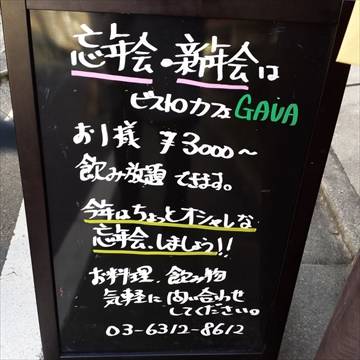 忘年会・新年会は
ビストロカフェGAVA
お1様 ¥3000〜
飲み放題できます。
今年はちょっとオシャレな
忘年会、しましょう!!
お料理、飲み物
気軽に問い合わせ
してください。
03-6312-8612